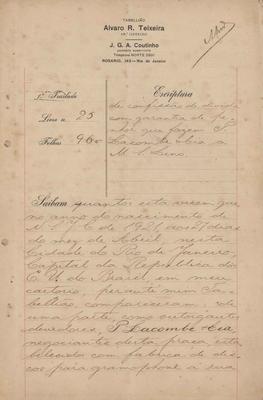 TABELLIÃO
Alvaro R. Teixeira
J. G. A. Coutinho
Telephone NORTE
ROSARIO, - Rio de Janeiro
1º Traslado
Escriptura
Livro n. 25
Folhas 96
de confissão de divida
com garantia de pe-
nhor que fazem P.
Lacombe & Cia a
M. S. Lino.
Saibam quantos esta virem que
no anno do nascimento de
N. S. J. C. de 1921, aos dias
do mez de Abril nesta
Cidade do Rio de Janeiro
Capital da Republica dos
E. U. do Brasil em meu
cartorio, perante mim Ta-
bellião, compareceram de
uma parte como outorgantes
devedores, P. Lacombe & Cia
negociantes desta praça, esta-
belecidos com fabrica de dis-
cos para gramophone á rua